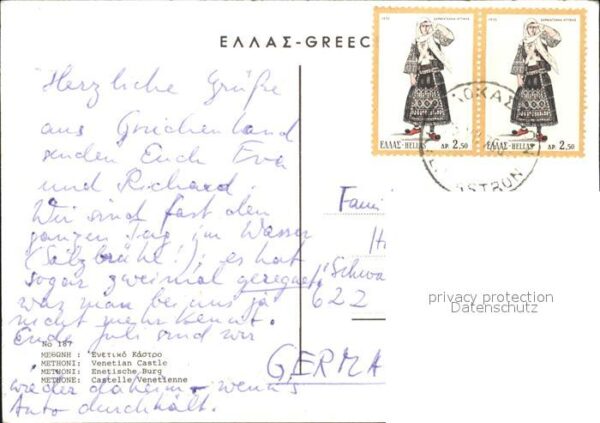 ΕΛΛΑΣ-GREEC
1972
1972
ΕΛΛΑΣ-HELLAS ΔΡ 2.50
ΕΛΛΑΣ-HELLAS ΔΡ 2.50
Herzliche Grüße
aus Griechenland
senden Euch Eva
und Richard.
Wir sind fast den
ganzen Tag im Wasser
(Salzbrühe!); es hat
sogar zweimal geregnet,
was man bei uns ja
nicht mehr kennt.
Ende Juli sind wir
wieder daheim - wenn's
Auto durchhält.
Fami
H
Schwa
622
GERMA
No 187
ΜΕΘΩΝΗ : Ἑνετικό Κάστρο
METHONI: Venetian Castle
METHONI: Enetische Burg
METHONE: Castelle Venetienne
privacy protection
Datenschutz